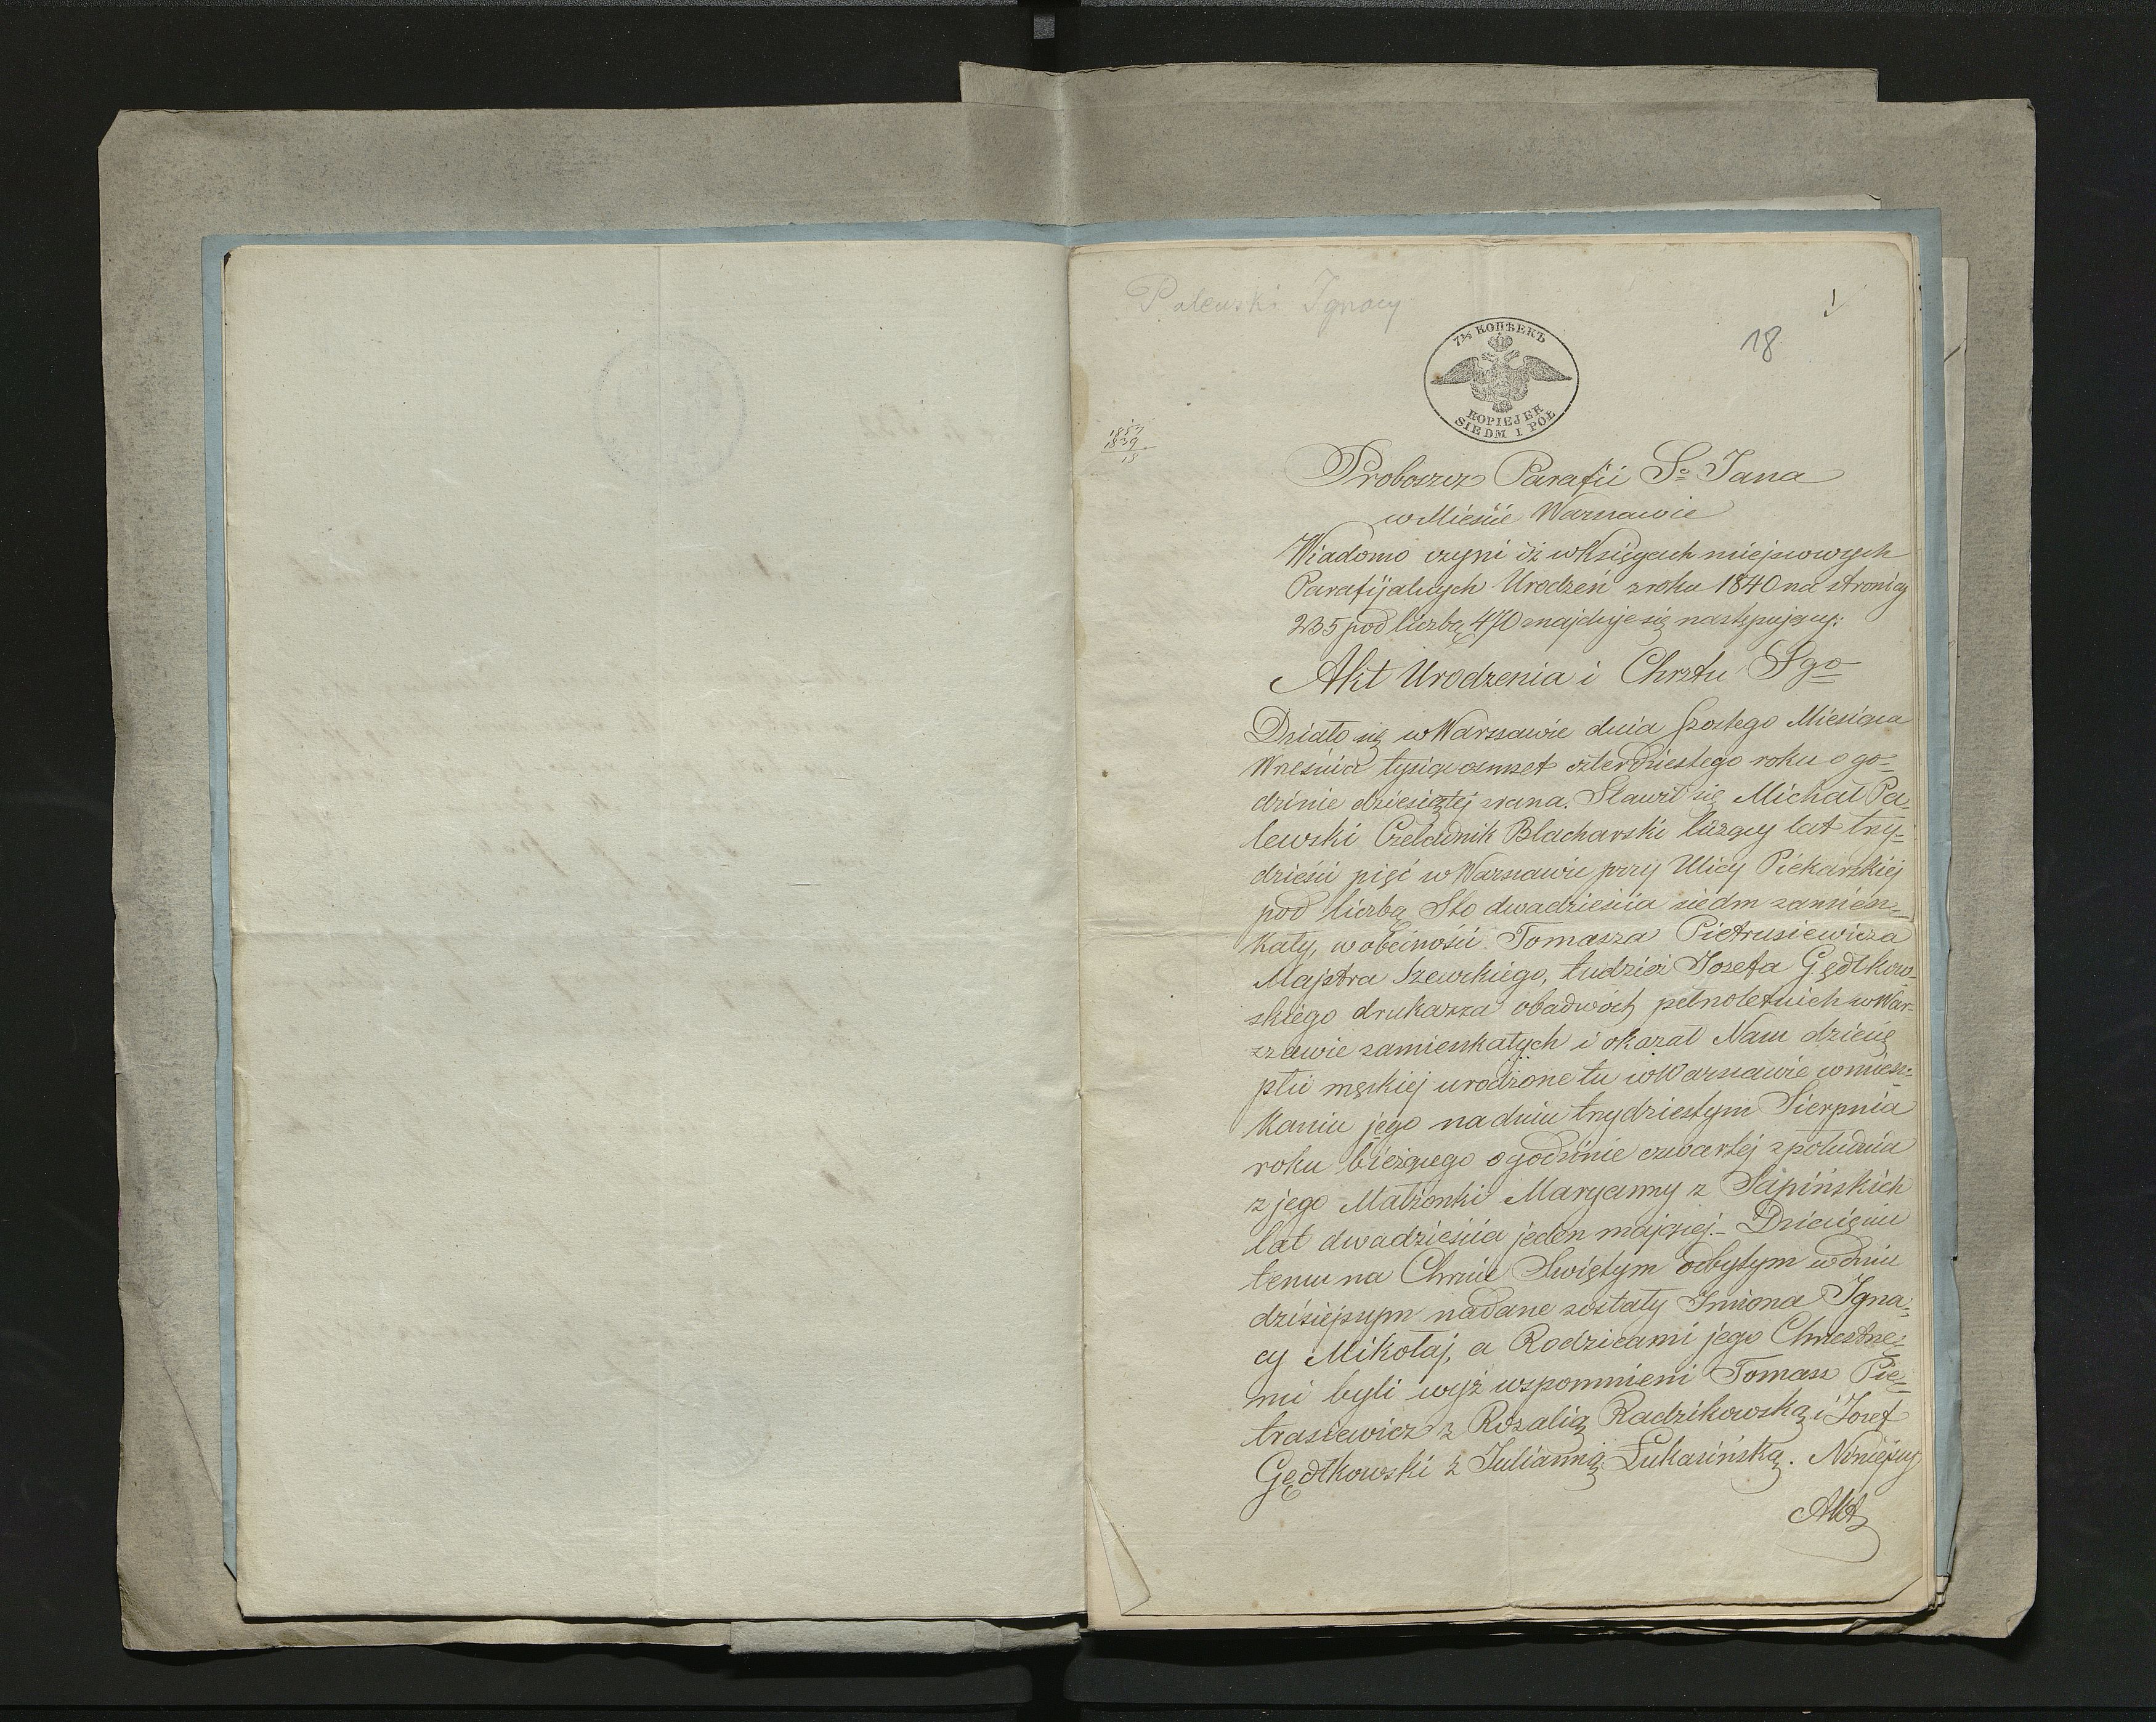 Palewski Ignacy
1
18
7½ КОПѢЕКЪ
KOPIEJEK
SIEDM I PÓŁ
1857
1839
18
Proboszcz Parafii Sº Jana
w Mieście Warszawie
Wiadomo czyni iż w Księgach miejscowych
Parafijalnych Urodzeń z roku 1840 na stronicy
235 pod liczbą 470 znajduje się następujący:
Akt Urodzenia i Chrztu Sgo
Działo się w Warszawie dnia szostego Miesiąca
Września tysiąc osmset czterdziestego roku o go=
dzinie dziesiątej zrana. Stawił się Michał Pa=
lewski Czeladnik Blacharski liczący lat trzy=
dzieści pięć w Warszawie przy Ulicy Piekarskiej
pod liczbą Sto dwadzieścia siedm zamiesz=
kały, w obecności Tomasza Pietrusiewicza
Majstra Szewckiego, tudzież Josefa Gędłkow=
skiego drukarza obudwóch pełnoletnich w War=
szawie zamieszkałych i okazał Nam dziecię
płci męskiej urodzone tu w Warszawie w miesz=
kaniu jego na dniu trzydziestym Sierpnia
roku bieżącego o godzinie czwartej z południa
z jego Małżonki Maryanny z Sapińskich
lat dwadzieścia jeden mającej.- Dziecięciu
temu na Chrzcie Swiętym odbytym w dniu
dzisiejszym nadane zostały Imiona Igna=
cy Mikołaj, a Rodzicami jego Chrzestne=
mi byli wyż wspomnieni Tomasz Pie=
trasiewicz z Rozalią Radzikowską i Josef
Gędłkowski z Julianną Łukasińską. Niniejszy
Akt